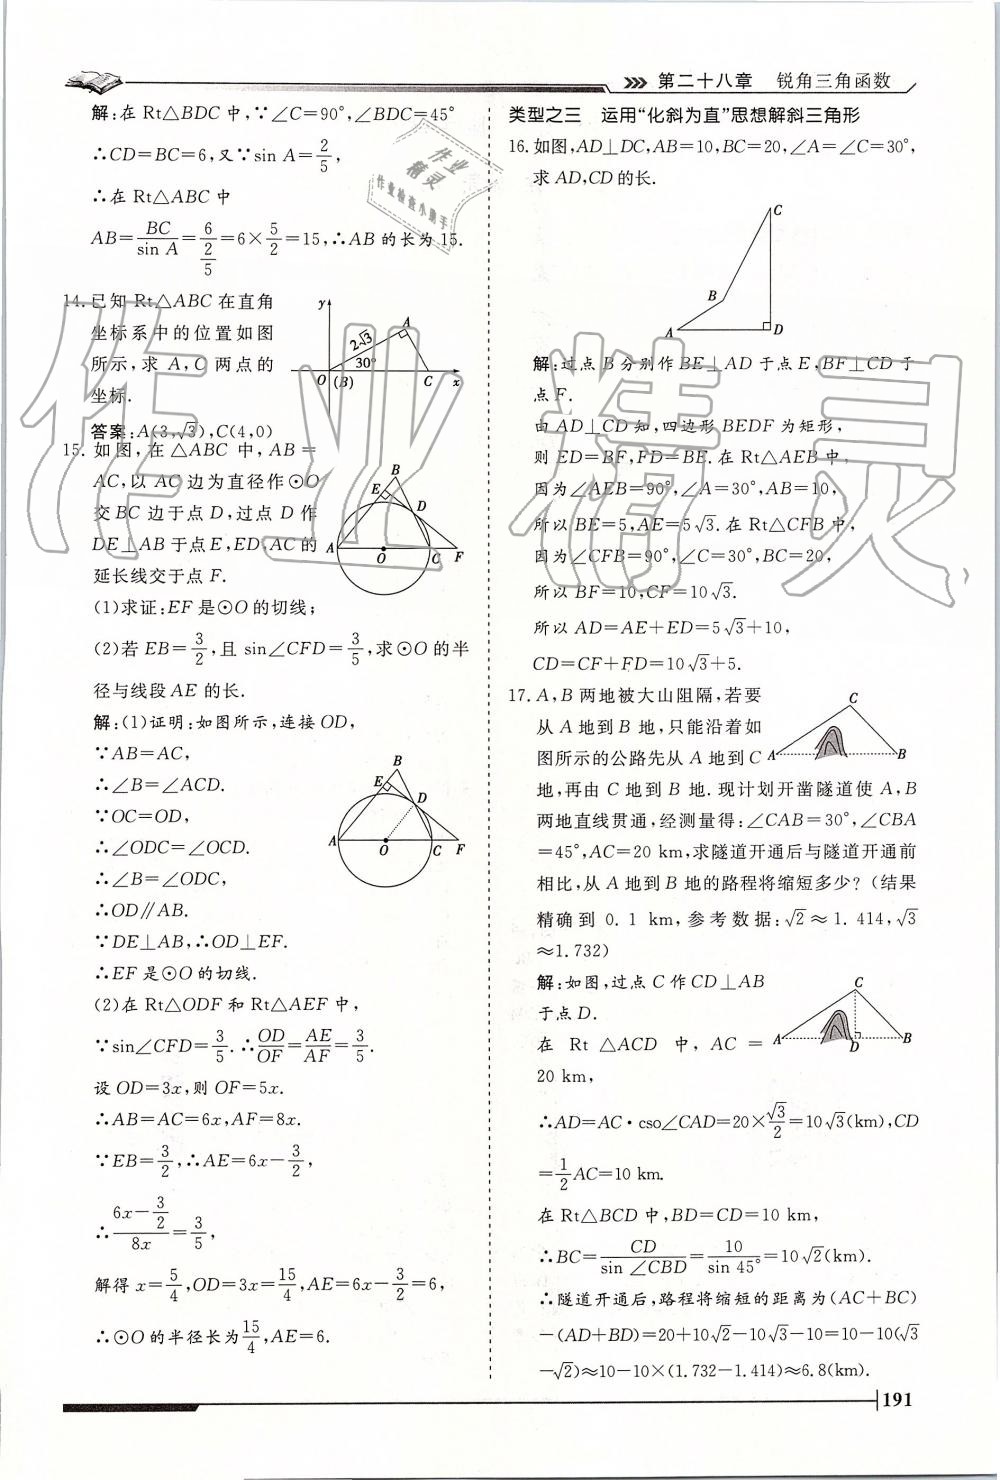 第二十八章 锐角三角函数
解:在Rt△BDC中,∵∠C=90°,∠BDC=45°
∴CD=BC=6,又∵sin A=2/5,
∴在Rt△ABC中
AB=BC/sin A=6/(2/5)=6×5/2=15,∴AB的长为15.
14.已知Rt△ABC在直角
坐标系中的位置如图
所示,求A,C两点的
坐标.
y
A
2√3
30°
O (B) C x
答案:A(3,√3),C(4,0)
15.如图,在△ABC中,AB=
AC,以AC边为直径作⊙O
交BC边于点D,过点D作
DE⊥AB于点E,ED、AC的
延长线交于点F.
B
E
D
A O C F
(1)求证:EF是⊙O的切线;
(2)若EB=3/2,且sin∠CFD=3/5,求⊙O的半
径与线段AE的长.
解:(1)证明:如图所示,连接OD,
∵AB=AC,
∴∠B=∠ACD.
∵OC=OD,
∴∠ODC=∠OCD.
∴∠B=∠ODC,
∴OD∥AB.
∵DE⊥AB,∴OD⊥EF.
∴EF是⊙O的切线.
B
E
D
A O C F
(2)在Rt△ODF和Rt△AEF中,
∵sin∠CFD=3/5.∴OD/OF=AE/AF=3/5.
设OD=3x,则OF=5x.
∴AB=AC=6x,AF=8x.
∵EB=3/2,∴AE=6x-3/2,
∴(6x-3/2)/8x=3/5,
解得x=5/4,OD=3x=15/4,AE=6x-3/2=6,
∴⊙O的半径长为15/4,AE=6.
类型之三 运用“化斜为直”思想解斜三角形
16.如图,AD⊥DC,AB=10,BC=20,∠A=∠C=30°,
求AD,CD的长.
C
B
A D
解:过点B分别作BE⊥AD于点E,BF⊥CD于
点F.
由AD⊥CD知,四边形BEDF为矩形,
则ED=BF,FD=BE.在Rt△AEB中,
因为∠AEB=90°,∠A=30°,AB=10,
所以BE=5,AE=5√3.在Rt△CFB中,
因为∠CFB=90°,∠C=30°,BC=20,
所以BF=10,CF=10√3.
所以AD=AE+ED=5√3+10,
CD=CF+FD=10√3+5.
17.A,B两地被大山阻隔,若要
从A地到B地,只能沿着如
图所示的公路先从A地到C
地,再由C地到B地.现计划开凿隧道使A,B
两地直线贯通,经测量得:∠CAB=30°,∠CBA
=45°,AC=20 km,求隧道开通后与隧道开通前
相比,从A地到B地的路程将缩短多少?(结果
精确到0.1 km,参考数据:√2≈1.414,√3
≈1.732)
C
A B
解:如图,过点C作CD⊥AB
于点D.
在Rt△ACD中,AC=
20 km,
C
A D B
∴AD=AC·cso∠CAD=20×√3/2=10√3(km),CD
=1/2AC=10 km.
在Rt△BCD中,BD=CD=10 km,
∴BC=CD/sin∠CBD=10/sin 45°=10√2(km).
∴隧道开通后,路程将缩短的距离为(AC+BC)
-(AD+BD)=20+10√2-10√3-10=10-10(√3
-√2)≈10-10×(1.732-1.414)≈6.8(km).
191
作业精灵
作业
精灵
作业检查小助手